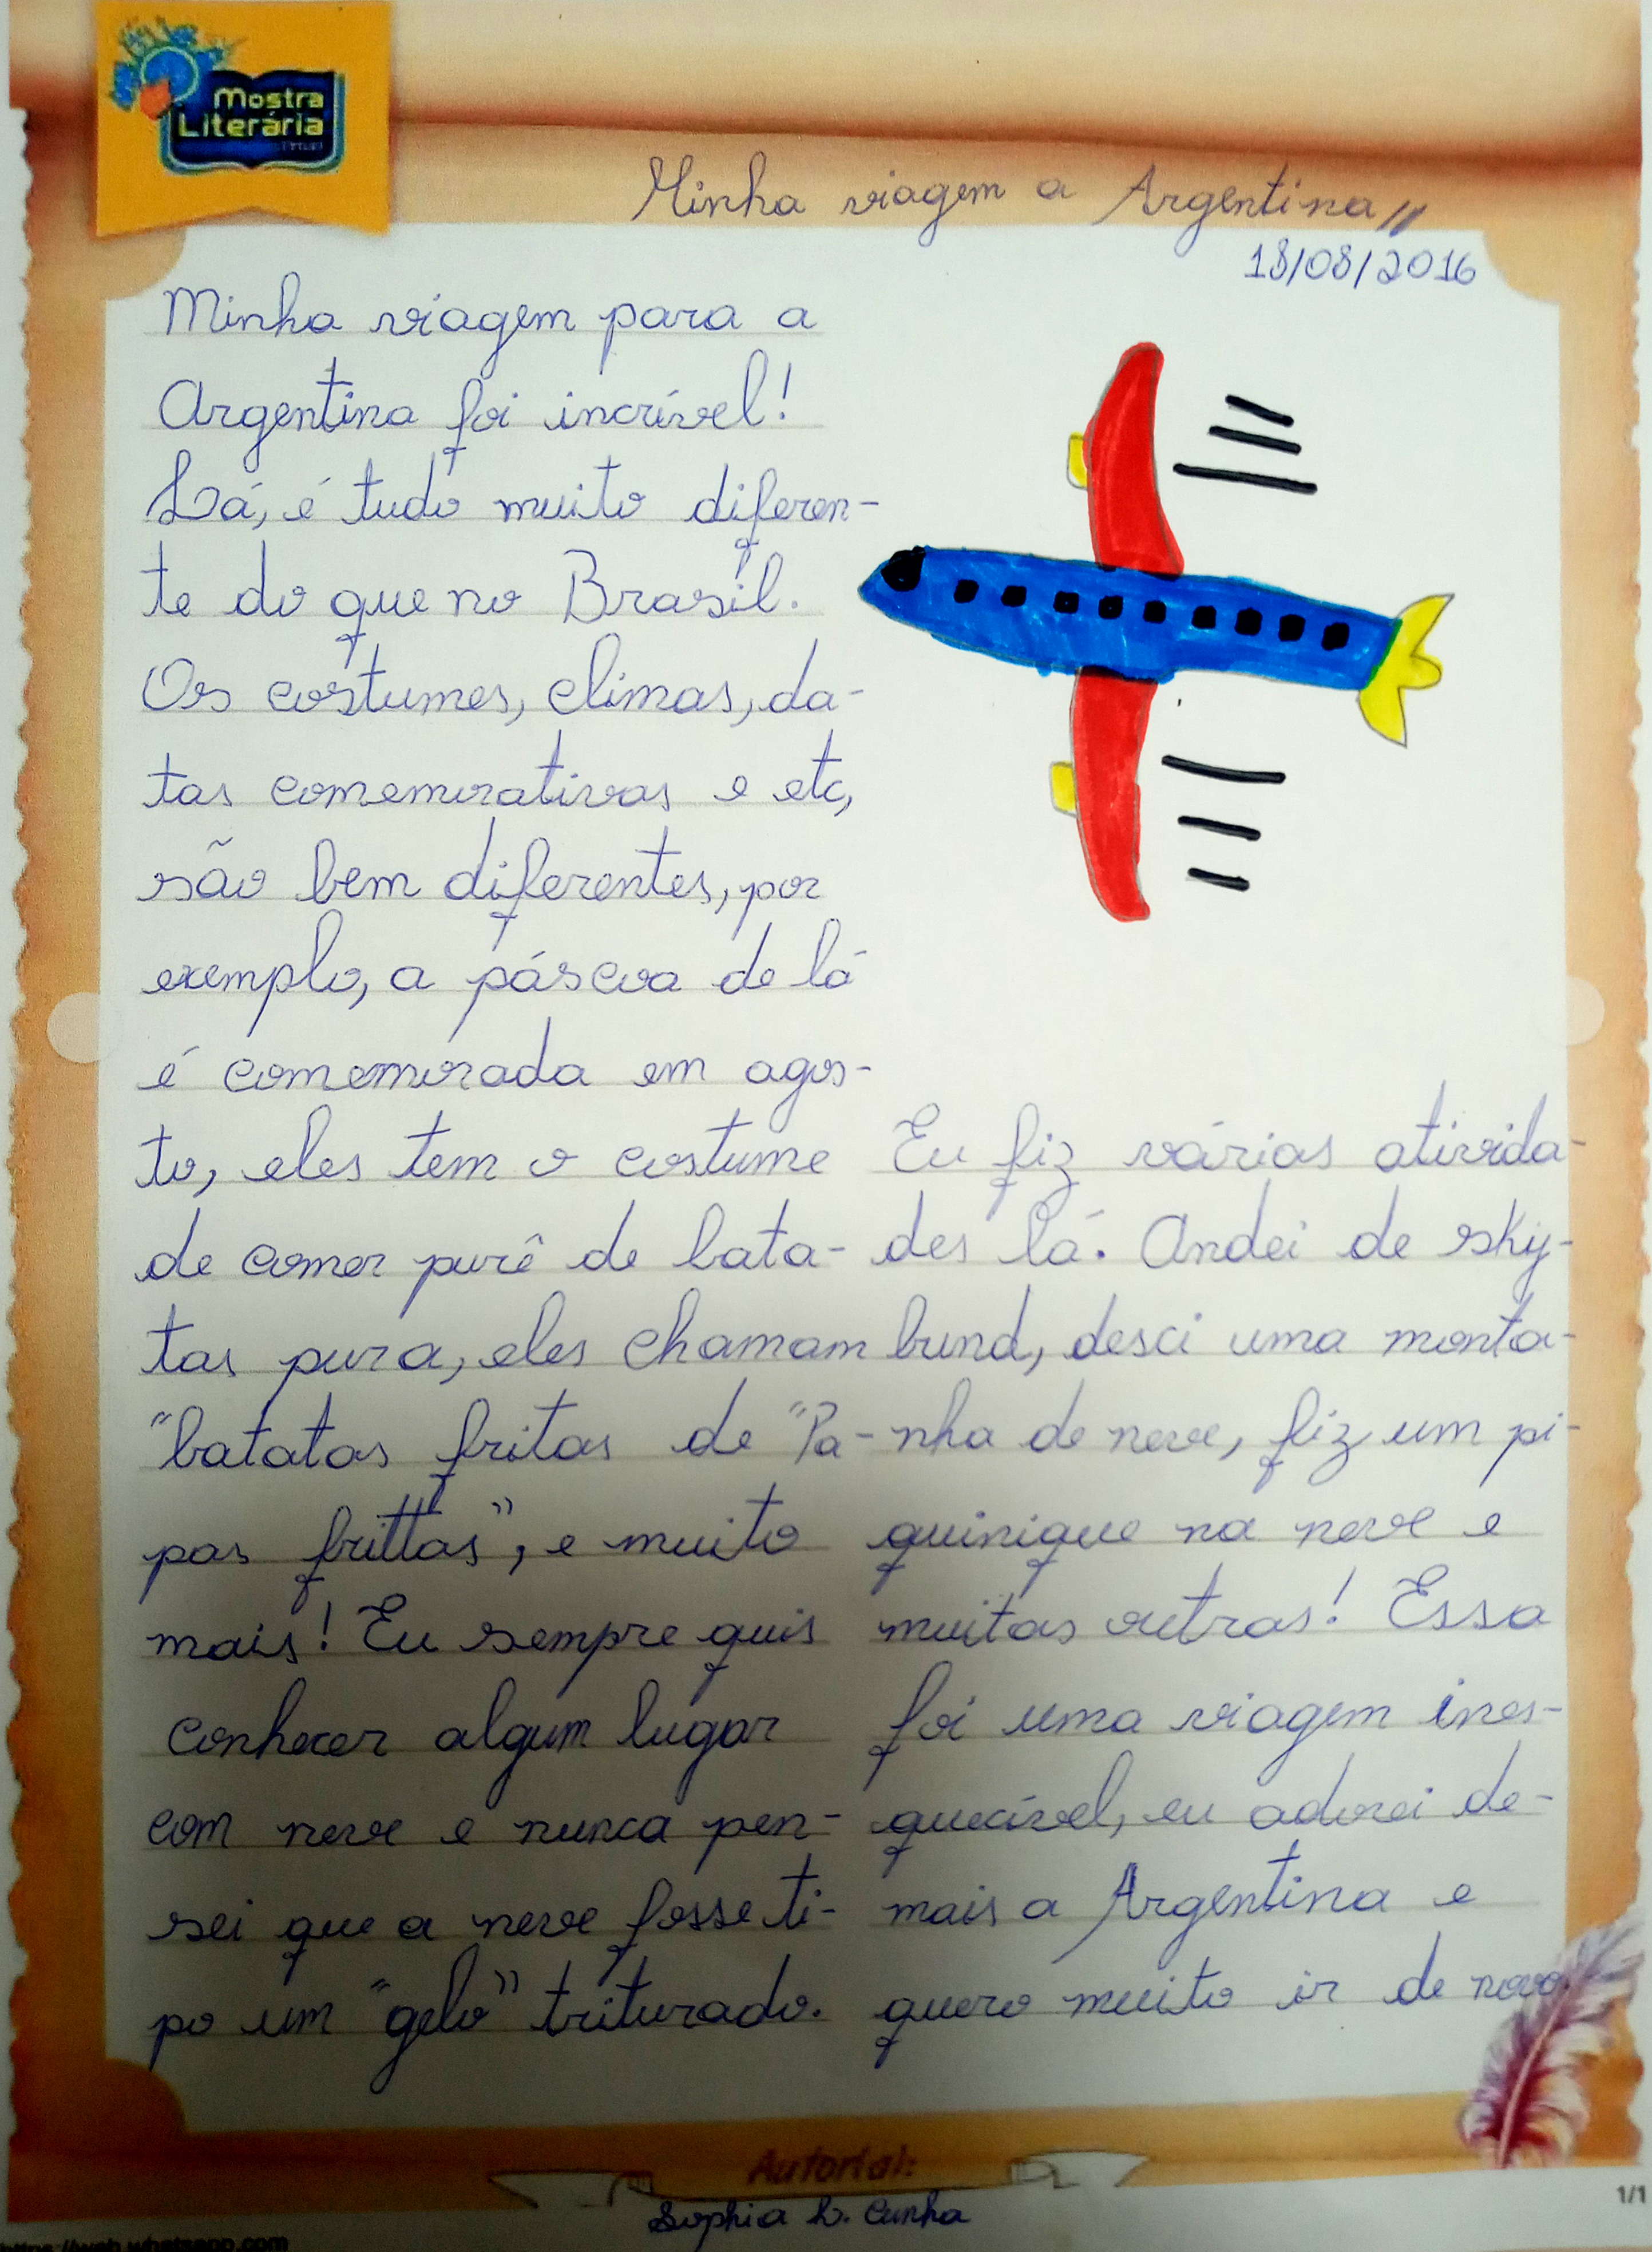 Mostra
Literária
Minha viagem a Argentina
18/08/2016
Minha viagem para a
Argentina foi incrível!
Lá, é tudo muito diferen-
te do que no Brasil.
Os costumes, climas, da-
tas comemorativas e etc,
são bem diferentes, por
exemplo, a páscoa de lá
é comemorada em agos-
to, eles tem o costume
de comer purê de bata-
tas pura, eles chamam
"batatas fritas de "Pa-
pas frittas", e muito
mais! Eu sempre quis
conhecer algum lugar
com neve e nunca pen-
sei que a neve fosse ti-
po um "gelo" triturado.
Eu fiz várias ativida-
des lá. Andei de sky-
bund, desci uma monta-
nha de neve, fiz um pi-
quinique na neve e
muitas outras! Essa
foi uma viagem ines-
quecível, eu adorei de-
mais a Argentina e
quero muito ir de novo.
Autorial:
Sophia L. Cunha
1/1
https://web.whatsapp.com